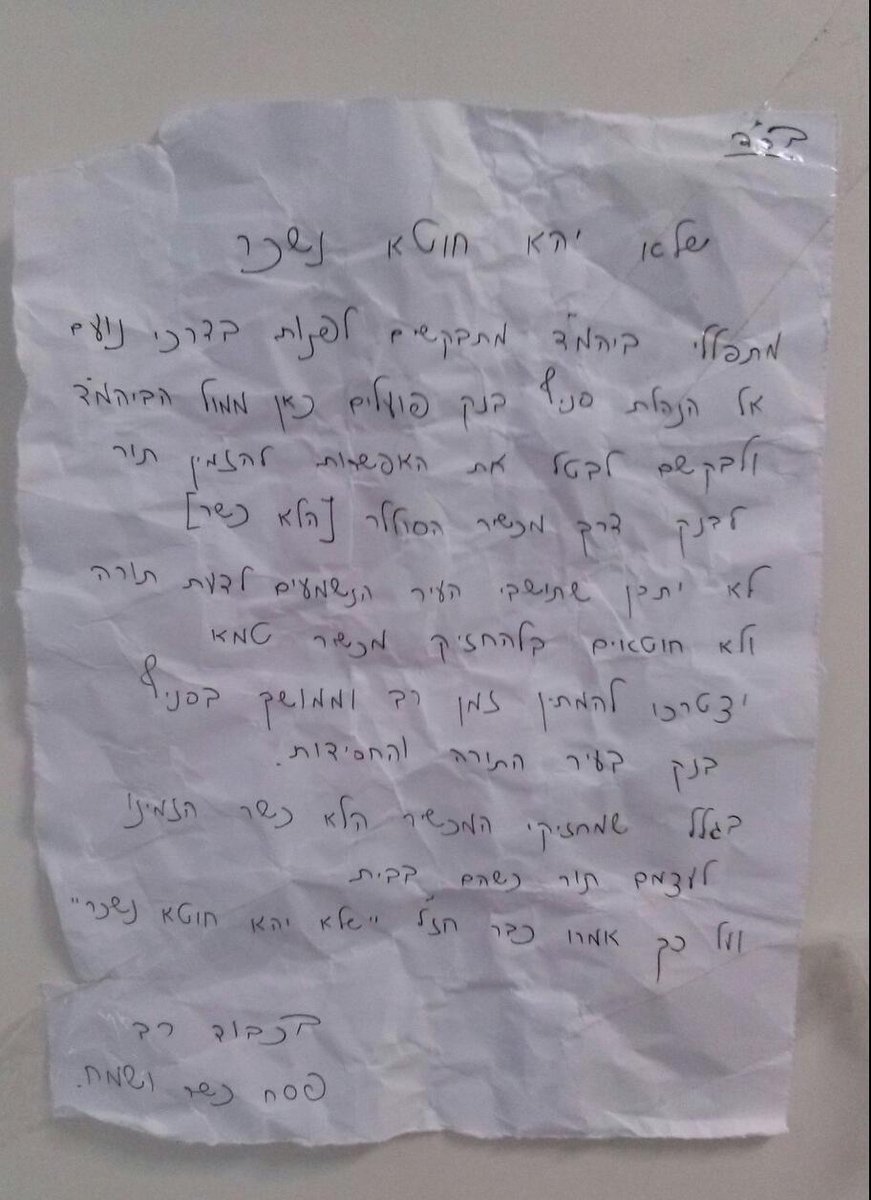 בס"ד
שלא יהא חוטא נשכר
מתפללי ביהמ"ד מתבקשים לפנות בדרכי נועם
אל הנהלת סניף בנק פועלים כאן ממול הביהמ"ד
ולבקשם לבטל את האפשרות להזמין תור
לבנק דרך מכשיר הסלולר [הלא כשר]
לא יתכן שתושבי העיר הנשמעים לדעת תורה
ולא חוטאים בלהחזיק מכשיר טמא
יצטרכו להמתין זמן רב וממושך בסניף
בנק בעיר התורה והחסידות.
בגלל שמחזיקי המכשיר הלא כשר הזמינו
לעצמם תור כשהם בבית
ועל כך אמרו כבר חז"ל "שלא יהא חוטא נשכר"
בכבוד רב
פסח כשר ושמח.